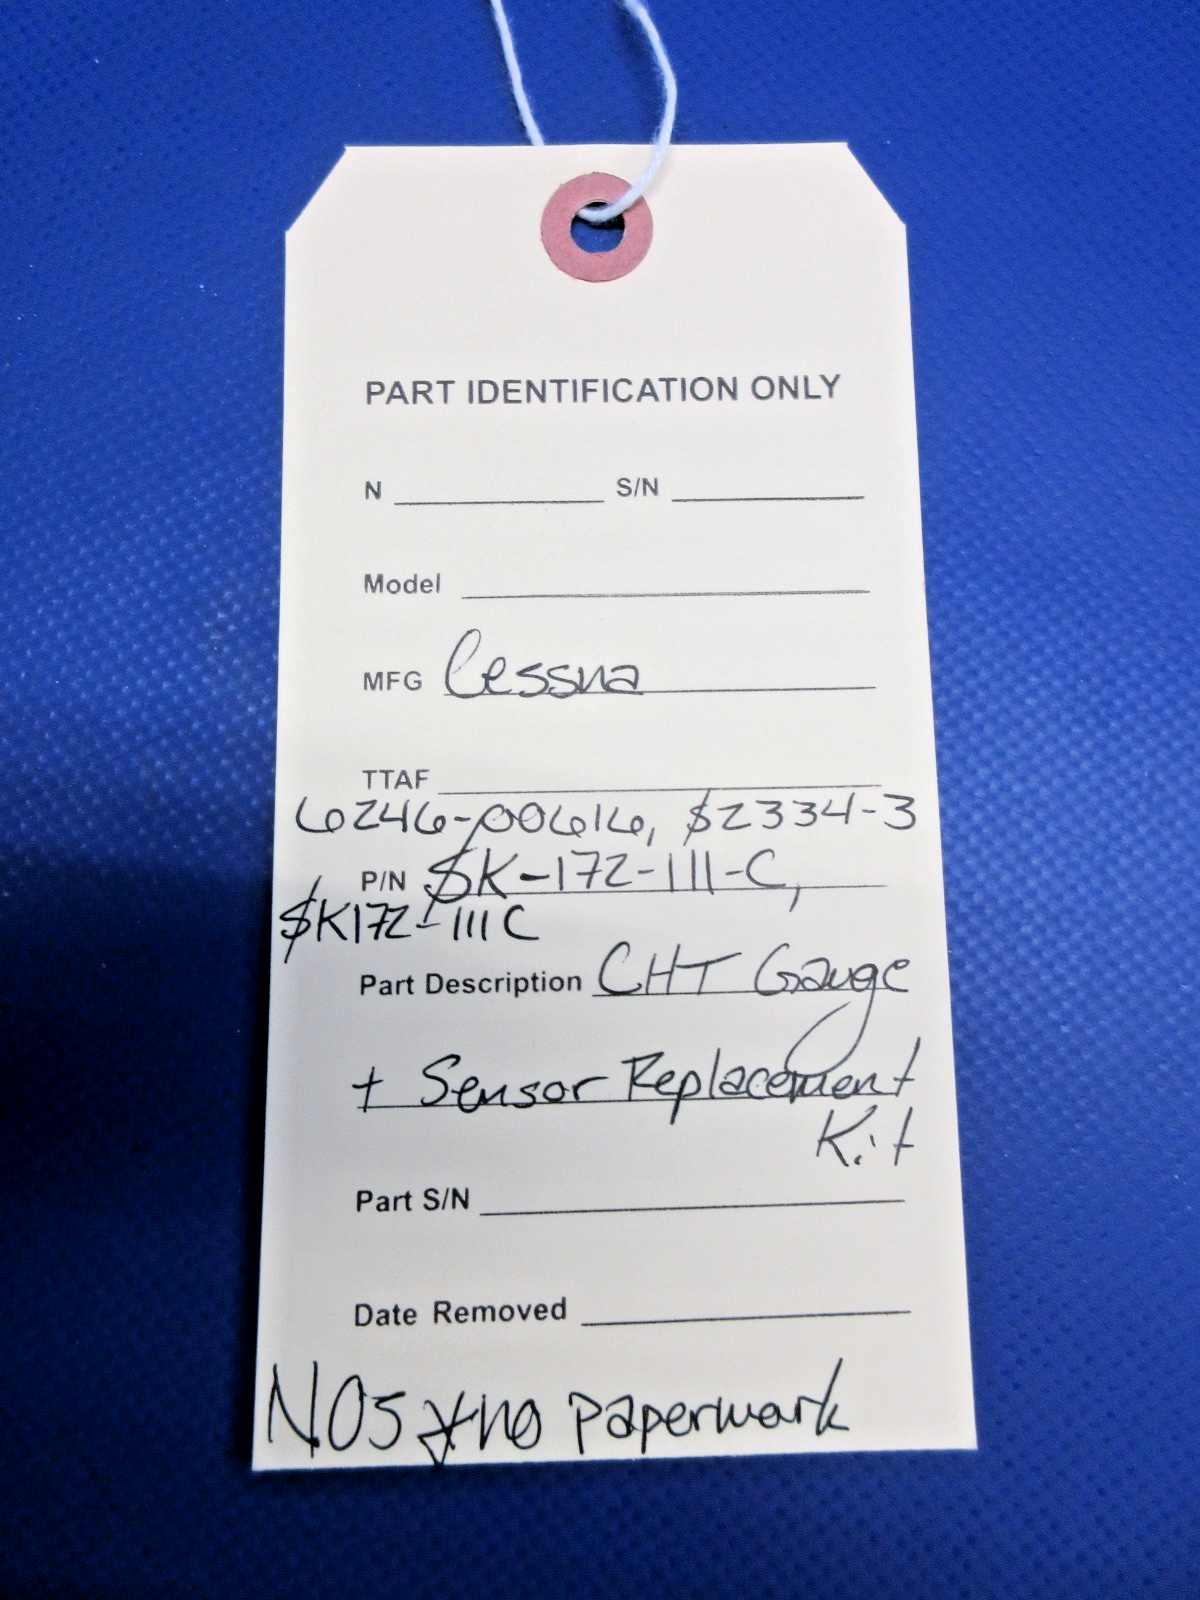 PART IDENTIFICATION ONLY
N S/N
Model
MFG Cessna
TTAF
6246-00616, S2334-3
P/N SK-172-111-C,
SK172-111C
Part Description CHT Gauge
+ Sensor Replacement
Kit
Part S/N
Date Removed
NOS *no paperwork